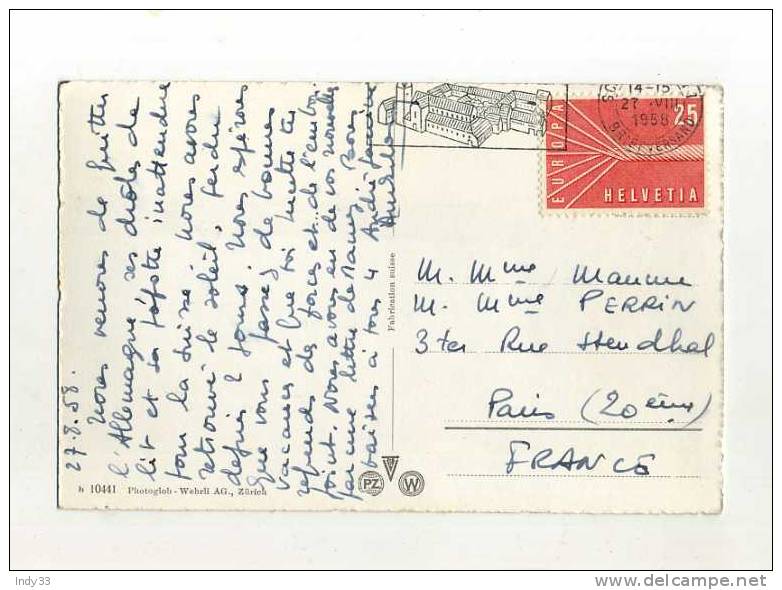 27.8.58.
Nous venons de quitter
l'Allemagne ses drôles de
lit et sa
inattendue
pour la Suisse, nous avons
retrouvé le soleil, perdu
depuis 2 jours. Nous espérons
que vous passez de bonnes
vacances et que toi
refends des forces et de l'embon
point. Nous avons eu de vos nouvelles
par une lettre de
baisers à tous 4 André
h 10441 Photoglob - Wehrli AG., Zürich
Fabrication suisse
PZ W
14-15
27.VIII
1958
EUROPA
25
HELVETIA
M. Mme
M. Mme PERRIN
3 ter Rue Stendhal
Paris (20ème)
FRANCE
Indy33
delcampe.net